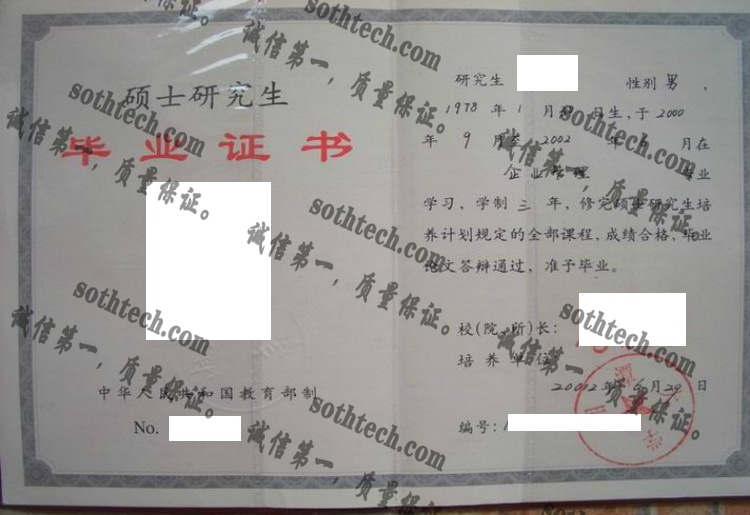 硕士研究生
毕业证书
中华人民共和国教育部制
No.
研究生 性别 男 ，
1978 年 1 月 日生，于 2000
年 9 月至 2002 年 月在
企业管理 专业
学习，学制 三 年，修完硕士研究生培
养计划规定的全部课程，成绩合格，毕业
论文答辩通过，准予毕业。
校(院、所)长：
培养单位
年 6 月 29 日
编号：
sothtech.com
诚信第一，质量保证。
sothtech.com
诚信第一，质量保证。
sothtech.com
诚信第一，质量保证。
sothtech.com
诚信第一，质量保证。
sothtech.com
诚信第一，质量保证。
sothtech.com
诚信第一，质量保证。
sothtech.com
诚信第一，质量保证。